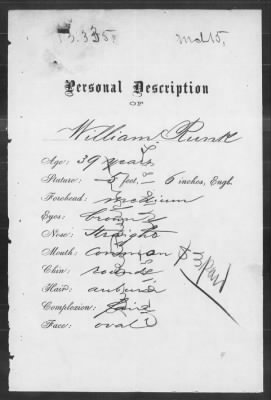 Personal Description
OF
William Runk
Age: 39 years
Stature: 5 feet, 6 inches, Engl.
Forehead: medium
Eyes: brown
Nose: straight
Mouth: common
Chin: round
Hair: auburn
Complexion: fair
Face: oval
$3 Paid